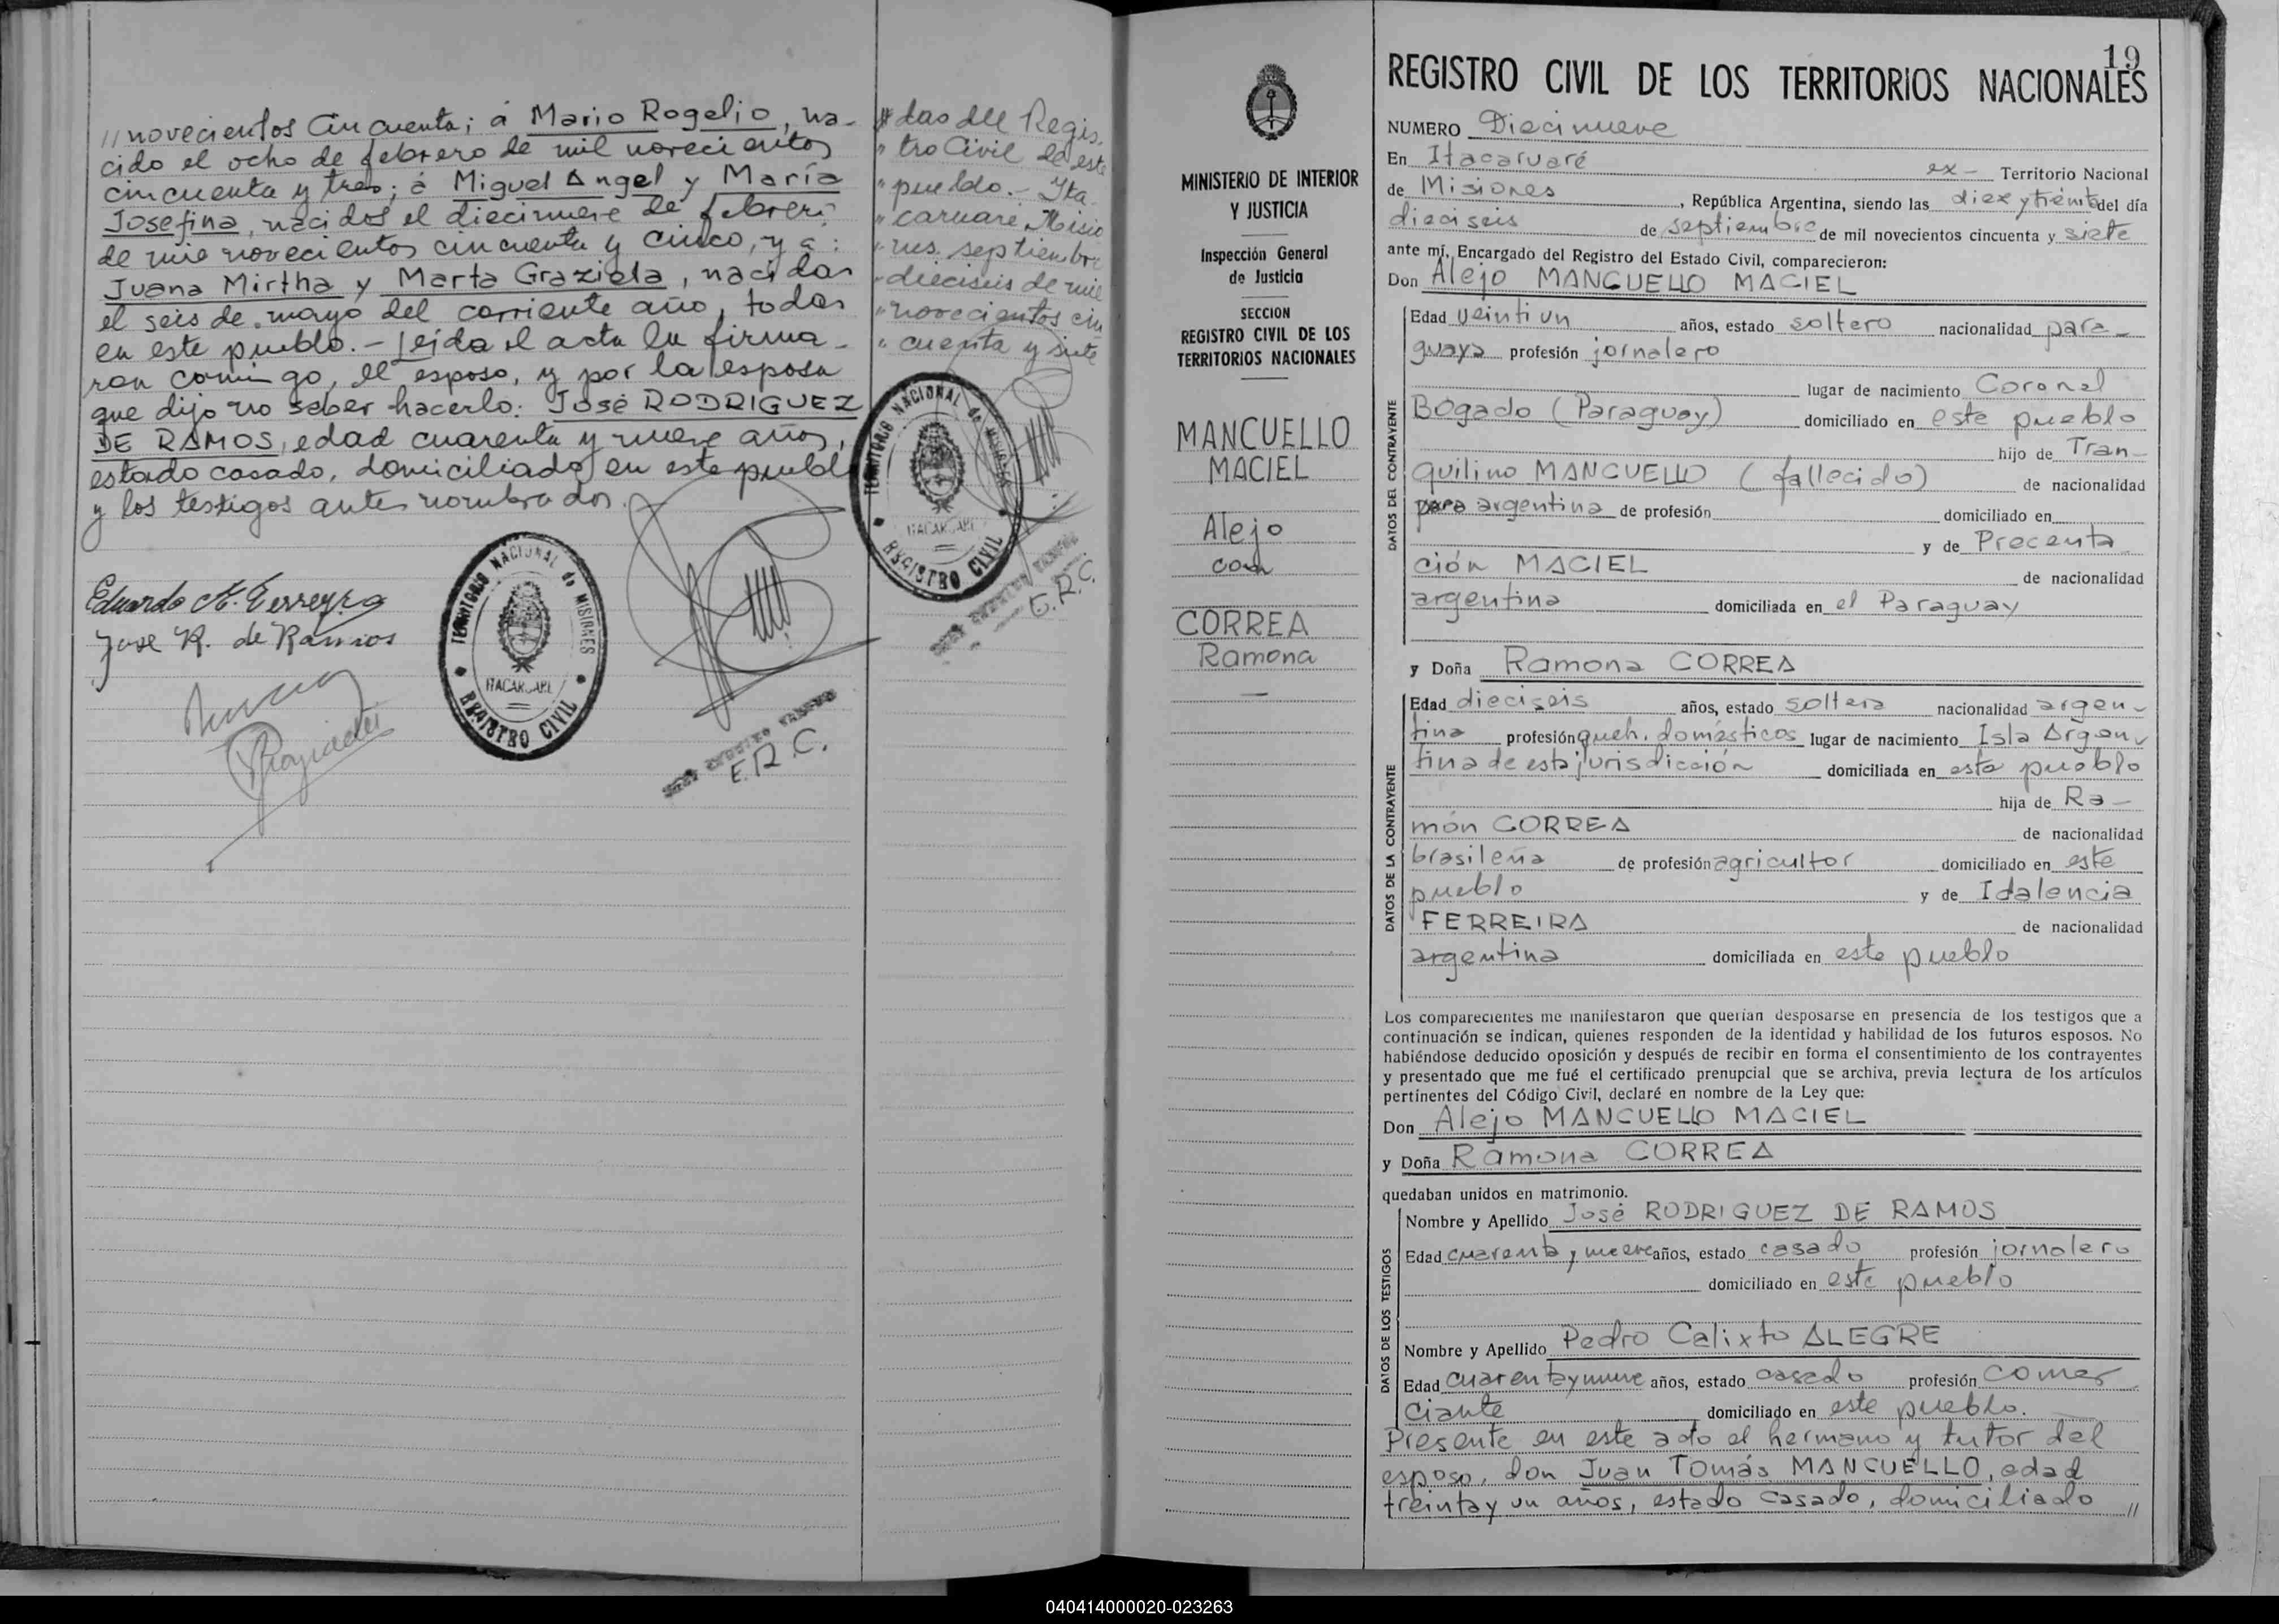 // novecientos cincuenta; á Mario Rogelio, na-
cido el ocho de febrero de mil novecientos
cincuenta y tres; á Miguel Angel y María
Josefina, nacidos el diecinueve de febrero
de mil novecientos cincuenta y cinco, y á:
Juana Mirtha y Marta Graziela, nacidas
el seis de mayo del corriente año, todos
en este pueblo.- Leída el acta la firma-
ron conmigo, el esposo, y por la esposa
que dijo no saber hacerlo: José RODRIGUEZ
DE RAMOS, edad cuarenta y nueve años,
estado casado, domiciliado en este pueblo
y los testigos antes nombrados.
Eduardo A. Ferreyra
Jose R. de Ramos
TERRITORIO NACIONAL de MISIONES
ITACARUARE
REGISTRO CIVIL
E.R.C.
das del Regis-
" tro Civil de este
" pueblo.- Ita-
" caruaré, Misio
" nes, septiembre
" dieciseis de mil
" novecientos cin
" cuenta y siete
TERRITORIO NACIONAL de MISIONES
ITACARUARE
REGISTRO CIVIL
E.R.C.
MINISTERIO DE INTERIOR
Y JUSTICIA
Inspección General
de Justicia
SECCION
REGISTRO CIVIL DE LOS
TERRITORIOS NACIONALES
MANCUELLO
MACIEL
Alejo
con
CORREA
Ramona
19
REGISTRO CIVIL DE LOS TERRITORIOS NACIONALES
NUMERO Diecinueve
En Itacaruaré ex- Territorio Nacional
de Misiones, República Argentina, siendo las diez y treinta del día
dieciseis de septiembre de mil novecientos cincuenta y siete
ante mí, Encargado del Registro del Estado Civil, comparecieron:
Don Alejo MANCUELLO MACIEL
DATOS DEL CONTRAYENTE
Edad veintiun años, estado soltero nacionalidad para-
guaya profesión jornalero
lugar de nacimiento Coronel
Bogado (Paraguay) domiciliado en este pueblo
hijo de Tran-
quilino MANCUELLO (fallecido) de nacionalidad
para argentina de profesión domiciliado en
y de Precenta
ción MACIEL de nacionalidad
argentina domiciliada en el Paraguay
y Doña Ramona CORREA
DATOS DE LA CONTRAYENTE
Edad dieciseis años, estado soltera nacionalidad argen-
tina profesión queh. domésticos lugar de nacimiento Isla Argen-
tina de esta jurisdicción domiciliada en este pueblo
hija de Ra-
món CORREA de nacionalidad
brasileña de profesión agricultor domiciliado en este
pueblo y de Idalencia
FERREIRA de nacionalidad
argentina domiciliada en este pueblo
Los comparecientes me manifestaron que querían desposarse en presencia de los testigos que a
continuación se indican, quienes responden de la identidad y habilidad de los futuros esposos. No
habiéndose deducido oposición y después de recibir en forma el consentimiento de los contrayentes
y presentado que me fué el certificado prenupcial que se archiva, previa lectura de los artículos
pertinentes del Código Civil, declaré en nombre de la Ley que:
Don Alejo MANCUELLO MACIEL
y Doña Ramona CORREA
quedaban unidos en matrimonio.
DATOS DE LOS TESTIGOS
Nombre y Apellido José RODRIGUEZ DE RAMOS
Edad cuarenta y nueve años, estado casado profesión jornalero
domiciliado en este pueblo
Nombre y Apellido Pedro Calixto ALEGRE
Edad cuarentaynueve años, estado casado profesión comer
ciante domiciliado en este pueblo.
Presente en este acto el hermano y tutor del
esposo, don Juan Tomás MANCUELLO, edad
treintay un años, estado casado, domiciliado //
040414000020-023263